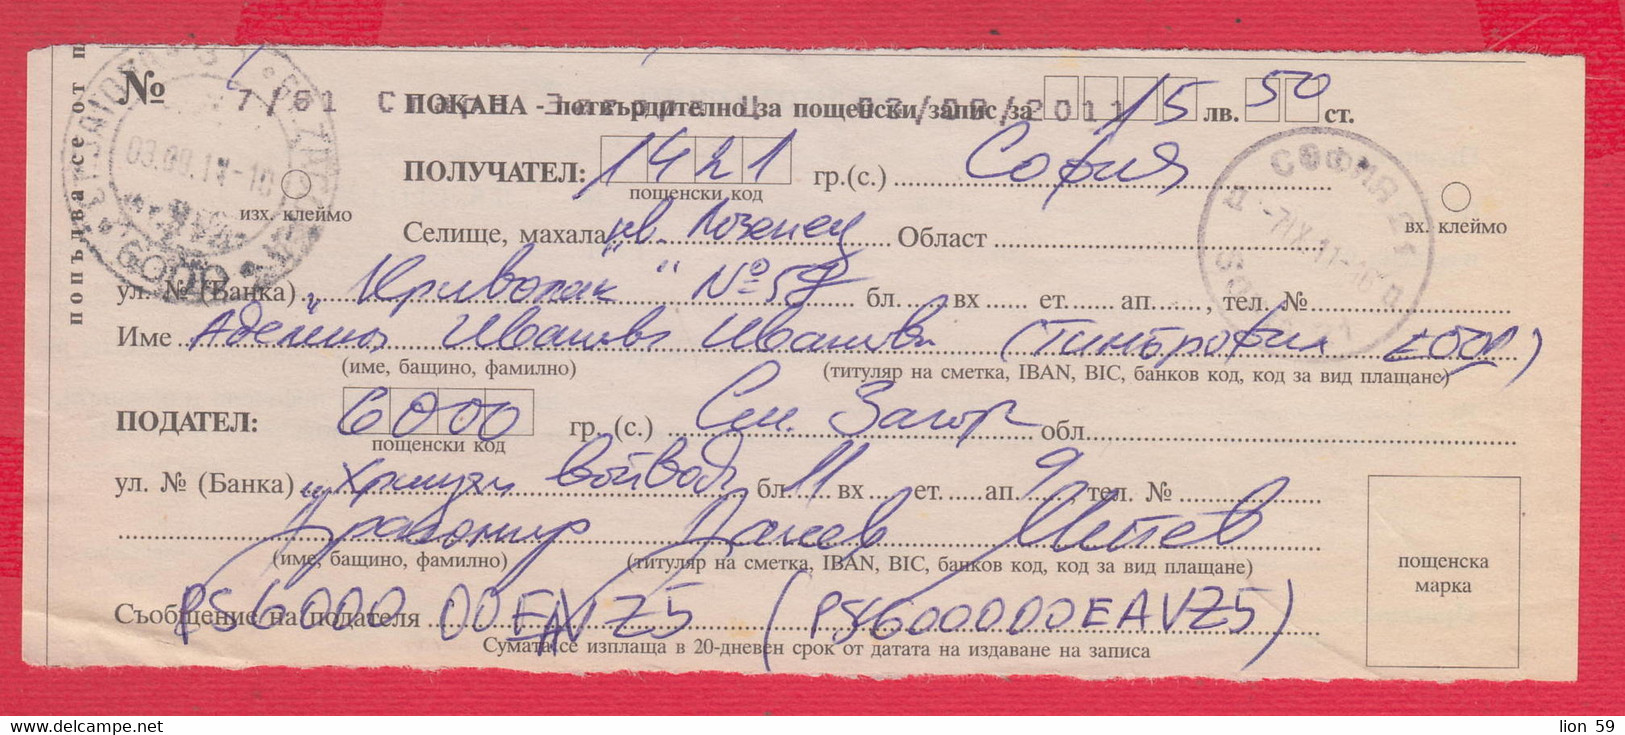 № 7/61 Стара Загора Ц 03/09/2011
ПОКАНА - потвърдително за пощенски запис за 15 лв. 50 ст.
ПОЛУЧАТЕЛ: 1421 гр.(с.) София
пощенски код
изх. клеймо
вх. клеймо
Селище, махала кв. Лозенец Област
ул. № (Банка) "Криволак" № 57 бл. вх ет. ап. , тел. №
Име Аделина Иванова Иванова (Тинтрофил ЕООД)
(име, бащино, фамилно) (титуляр на сметка, IBAN, BIC, банков код, код за вид плащане)
ПОДАТЕЛ: 6000 гр. (с.) Ст. Загора обл.
пощенски код
ул. № (Банка) войвода бл. 11 вх ет. ап. 9 тел. №
Драгомир Митев
(име, бащино, фамилно) (титуляр на сметка, IBAN, BIC, банков код, код за вид плащане)
Съобщение на подателя PS6000 00EAVZ5 (PS600000EAVZ5)
Сумата се изплаща в 20-дневен срок от датата на издаване на записа
пощенска
марка
попълва се от п
03.09.11-10
6000
СОФИЯ 21
-7.IX.11-16
lion 59
www.delcampe.net